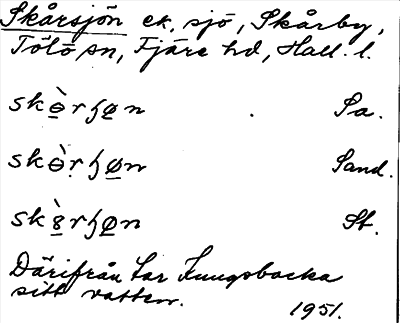 Skårsjön ek, sjö, Skårby,
Tölö sn, Fjäre hd, Hall. l.
skɵ̀rɧøn Sa.
skɵ̀rɧøn Sand.
sk8̀rɧøn St.
Därifrån tar Kungsbacka
sitt vatten. 1951.